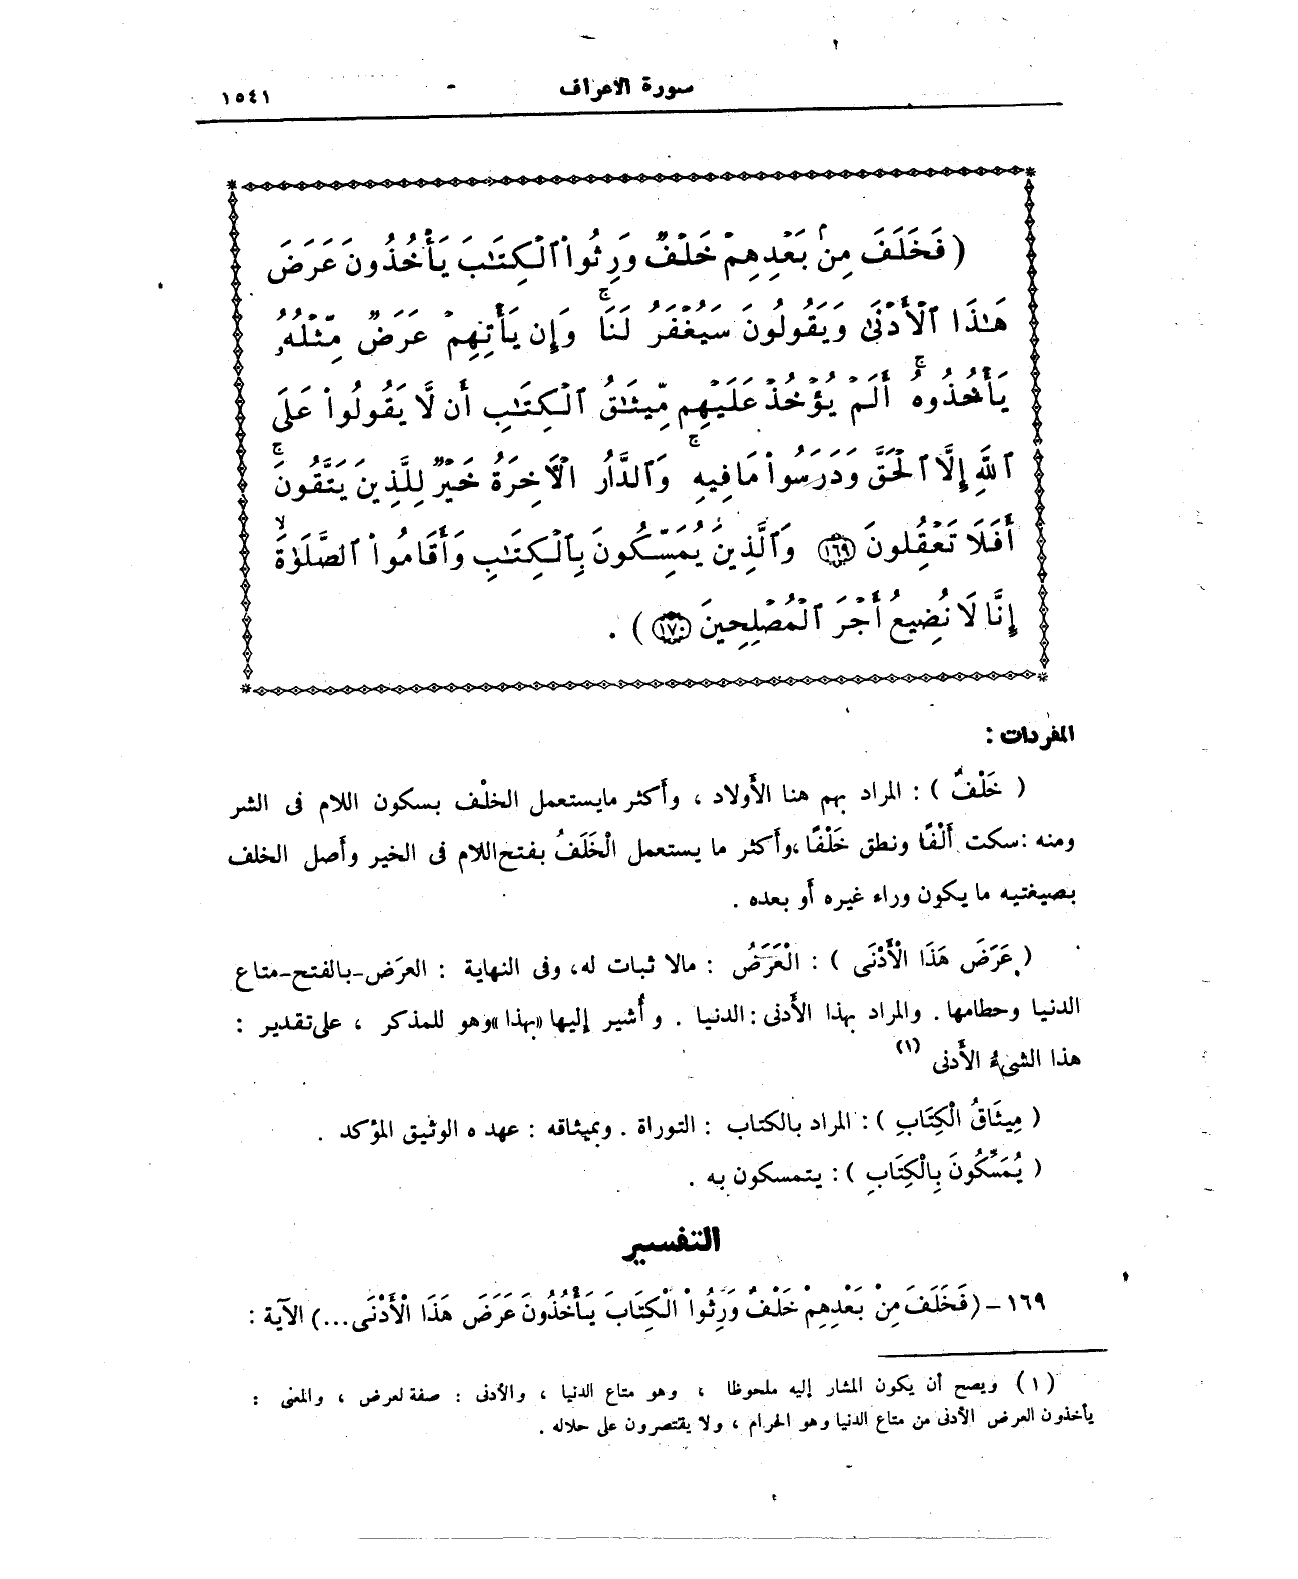 سورة الاعراف
١٥٤١
( فَخَلَفَ مِنۢ بَعْدِهِمْ خَلْفٌ وَرِثُوا۟ ٱلْكِتَـٰبَ يَأْخُذُونَ عَرَضَ
هَـٰذَا ٱلْأَدْنَىٰ وَيَقُولُونَ سَيُغْفَرُ لَنَا ۚ وَإِن يَأْتِهِمْ عَرَضٌ مِّثْلُهُۥ
يَأْخُذُوهُ ۚ أَلَمْ يُؤْخَذْ عَلَيْهِم مِّيثَـٰقُ ٱلْكِتَـٰبِ أَن لَّا يَقُولُوا۟ عَلَى
ٱللَّهِ إِلَّا ٱلْحَقَّ وَدَرَسُوا۟ مَا فِيهِ ۚ وَٱلدَّارُ ٱلْآخِرَةُ خَيْرٌ لِّلَّذِينَ يَتَّقُونَ ۚ
أَفَلَا تَعْقِلُونَ ١٦٩ وَٱلَّذِينَ يُمَسِّكُونَ بِٱلْكِتَـٰبِ وَأَقَامُوا۟ ٱلصَّلَوٰةَ ۙ
إِنَّا لَا نُضِيعُ أَجْرَ ٱلْمُصْلِحِينَ ١٧٠ ) .
المفردات :
( خَلْفٌ ) : المراد بهم هنا الأَولاد ، وأَكثر مايستعمل الخلْف بسكون اللام فى الشر
ومنه :سكت أَلْفًا ونطق خَلْفًا ،وأَكثر ما يستعمل الْخَلَفُ بفتح اللام فى الخير وأَصل الخلف
بصيغتيه ما يكون وراء غيره أَو بعده .
( عَرَضَ هَذَا الْأَدْنَى ) : الْعَرَضُ : مالا ثبات له، وفى النهاية : العرَض-بالفتح-متاع
الدنيا وحطامها. والمراد بهذا الأَدنى : الدنيا . وأُشير إليها «بهذا» وهو للمذكر ، على تقدير :
هذا الشىءُ الأَدنى (١)
( مِيثَاقُ الْكِتَابِ ) : المراد بالكتاب : التوراة . وبميثاقه : عهده الوثيق المؤكد .
( يُمَسِّكُونَ بِالْكِتَابِ ) : يتمسكون به .
التفسير
١٦٩ - (فَخَلَفَ مِنْ بَعْدِهِمْ خَلْفٌ وَرِثُوا الْكِتَابَ يَأْخُذُونَ عَرَضَ هَذَا الْأَدْنَى...) الآية :
(١) ويصح أن يكون المشار إليه ملحوظا ، وهو متاع الدنيا ، والأدنى : صفة لعرض ، والمعنى :
يأخذون العرض الأدنى من متاع الدنيا وهو الحرام ، ولا يقتصرون على حلاله .